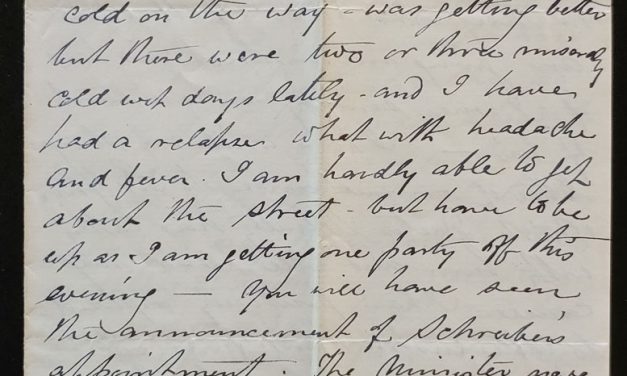 cold on the way - was getting better
but there were two or three miserably
cold wet days lately - and I have
had a relapse what with headache
and fever. I am hardly able to get
about the street - but have to be
up as I am getting one party off this
evening — You will have seen
the announcement of Schreiber's
appointment. The Minister